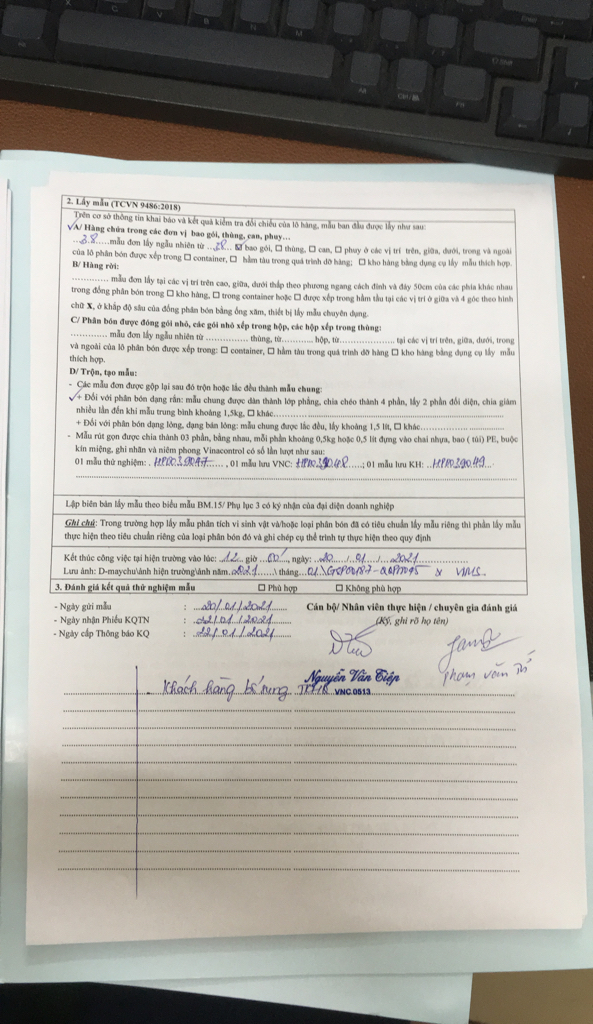 2. Lấy mẫu (TCVN 9486:2018)
Trên cơ sở thông tin khai báo và kết quả kiểm tra đối chiếu của lô hàng, mẫu ban đầu được lấy như sau:
A/ Hàng chứa trong các đơn vị bao gói, thùng, can, phuy...
...38......mẫu đơn lấy ngẫu nhiên từ ...38... ☑ bao gói, ☐ thùng, ☐ can, ☐ phuy ở các vị trí trên, giữa, dưới, trong và ngoài
của lô phân bón được xếp trong ☐ container, ☐ hầm tàu trong quá trình dỡ hàng; ☐ kho hàng bằng dụng cụ lấy mẫu thích hợp.
B/ Hàng rời:
................ mẫu đơn lấy tại các vị trí trên cao, giữa, dưới thấp theo phương ngang cách đỉnh và đáy 50cm của các phía khác nhau
trong đống phân bón trong ☐ kho hàng, ☐ trong container hoặc ☐ được xếp trong hầm tầu tại các vị trí ở giữa và 4 góc theo hình
chữ X, ở khắp độ sâu của đống phân bón bằng ống xăm, thiết bị lấy mẫu chuyên dụng.
C/ Phân bón được đóng gói nhỏ, các gói nhỏ xếp trong hộp, các hộp xếp trong thùng:
................ mẫu đơn lấy ngẫu nhiên từ .................... thùng, từ............... hộp, từ.......................... tại các vị trí trên, giữa, dưới, trong
và ngoài của lô phân bón được xếp trong: ☐ container, ☐ hầm tàu trong quá trình dỡ hàng ☐ kho hàng bằng dụng cụ lấy mẫu
thích hợp.
D/ Trộn, tạo mẫu:
- Các mẫu đơn được gộp lại sau đó trộn hoặc lắc đều thành mẫu chung:
+ Đối với phân bón dạng rắn: mẫu chung được dàn thành lớp phẳng, chia chéo thành 4 phần, lấy 2 phần đối diện, chia giảm
nhiều lần đến khi mẫu trung bình khoảng 1,5kg, ☐ khác...............
+ Đối với phân bón dạng lỏng, dạng bán lỏng: mẫu chung được lắc đều, lấy khoảng 1,5 lít, ☐ khác...............
- Mẫu rút gọn được chia thành 03 phần, bằng nhau, mỗi phần khoảng 0,5kg hoặc 0,5 lít đựng vào chai nhựa, bao ( túi) PE, buộc
kín miệng, ghi nhãn và niêm phong Vinacontrol có số lần lượt như sau:
01 mẫu thử nghiệm: . HPR039047 ..., 01 mẫu lưu VNC: HPR039048 .....; 01 mẫu lưu KH: ..HPR039049...
Lập biên bản lấy mẫu theo biểu mẫu BM.15/ Phụ lục 3 có ký nhận của đại diện doanh nghiệp
Ghi chú: Trong trường hợp lấy mẫu phân tích vi sinh vật và/hoặc loại phân bón đã có tiêu chuẩn lấy mẫu riêng thì phần lấy mẫu
thực hiện theo tiêu chuẩn riêng của loại phân bón đó và ghi chép cụ thể trình tự thực hiện theo quy định
Kết thúc công việc tại hiện trường vào lúc: .12.. giờ ..00'..., ngày: ...20.../...01.../...2021...
Lưu ảnh: D-maychu\ảnh hiện trường\ảnh năm..2021......\ tháng...01.\ & VIMS
3. Đánh giá kết quả thử nghiệm mẫu ☐ Phù hợp ☐ Không phù hợp
- Ngày gửi mẫu : ...20/01/2021......
- Ngày nhận Phiếu KQTN : ..22/01/2021......
- Ngày cấp Thông báo KQ : ..22/01/2021......
Cán bộ/ Nhân viên thực hiện / chuyên gia đánh giá
(Ký, ghi rõ họ tên)
Nguyễn Văn Tiệp
VNC 0513
Phạm Văn
- Khách hàng bổ sung